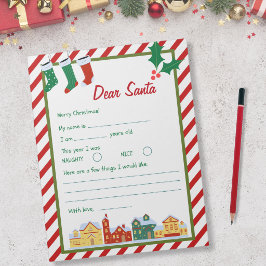 Dear Santa
Merry Christmas!
My name is
I am years old
This year I was
NAUGHTY NICE
Here are a few things I would like:
With love,